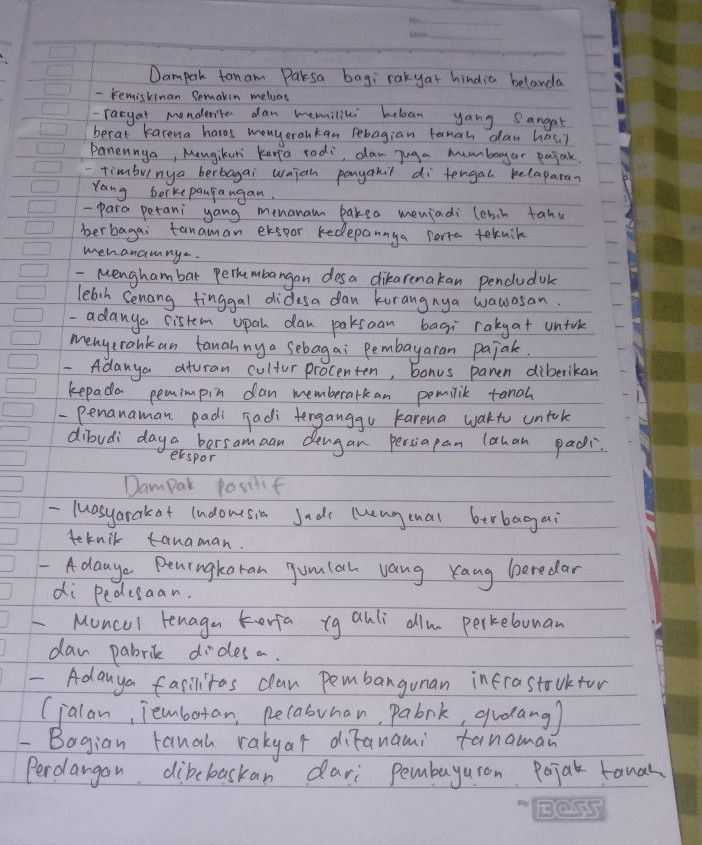 No:
Date:
Dampak tanam Paksa bagi rakyat hindia belanda
- kemiskinan semakin meluas
- rakyat menderita dan memiliki beban yang sangat
berat karena haros menyerahkan sebagian tanah dan hasil
panennya, Mengikuti kerja rodi, dan juga membayar pajak.
- timbulnya berbagai wajah penyakit di tengah kelaparan
yang berkepanjangan.
- para petani yang menanam paksa menjadi lebih tahu
berbagai tanaman ekspor kedepannya serta teknik
menanamnya.
- Menghambat perkembangan desa dikarenakan penduduk
lebih senang tinggal didesa dan kurangnya wawasan.
- adanya sistem upah dan paksaan bagi rakyat untuk
menyerahkan tanahnya sebagai pembayaran pajak.
- Adanya aturan cultur procenten, bonus panen diberikan
kepada pemimpin dan memberatkan pemilik tanah
- penanaman padi jadi terganggu karena waktu untuk
dibudi daya bersamaan dengan persiapan lahan padi.
ekspor
Dampak positif
- Masyarakat Indonesia Jadi Mengenal berbagai
teknik tanaman.
- Adanya Peningkatan jumlah uang yang beredar
di pedesaan.
- Muncul tenaga kerja yg ahli dlm perkebunan
dan pabrik didesa.
- Adanya fasilitas dan pembangunan infrastruktur
(jalan, jembatan, pelabuhan, pabrk, gudang)
- Bagian tanah rakyat ditanami tanaman
Perdangan dibebaskan dari pembayaran pajak tanah
BOSS